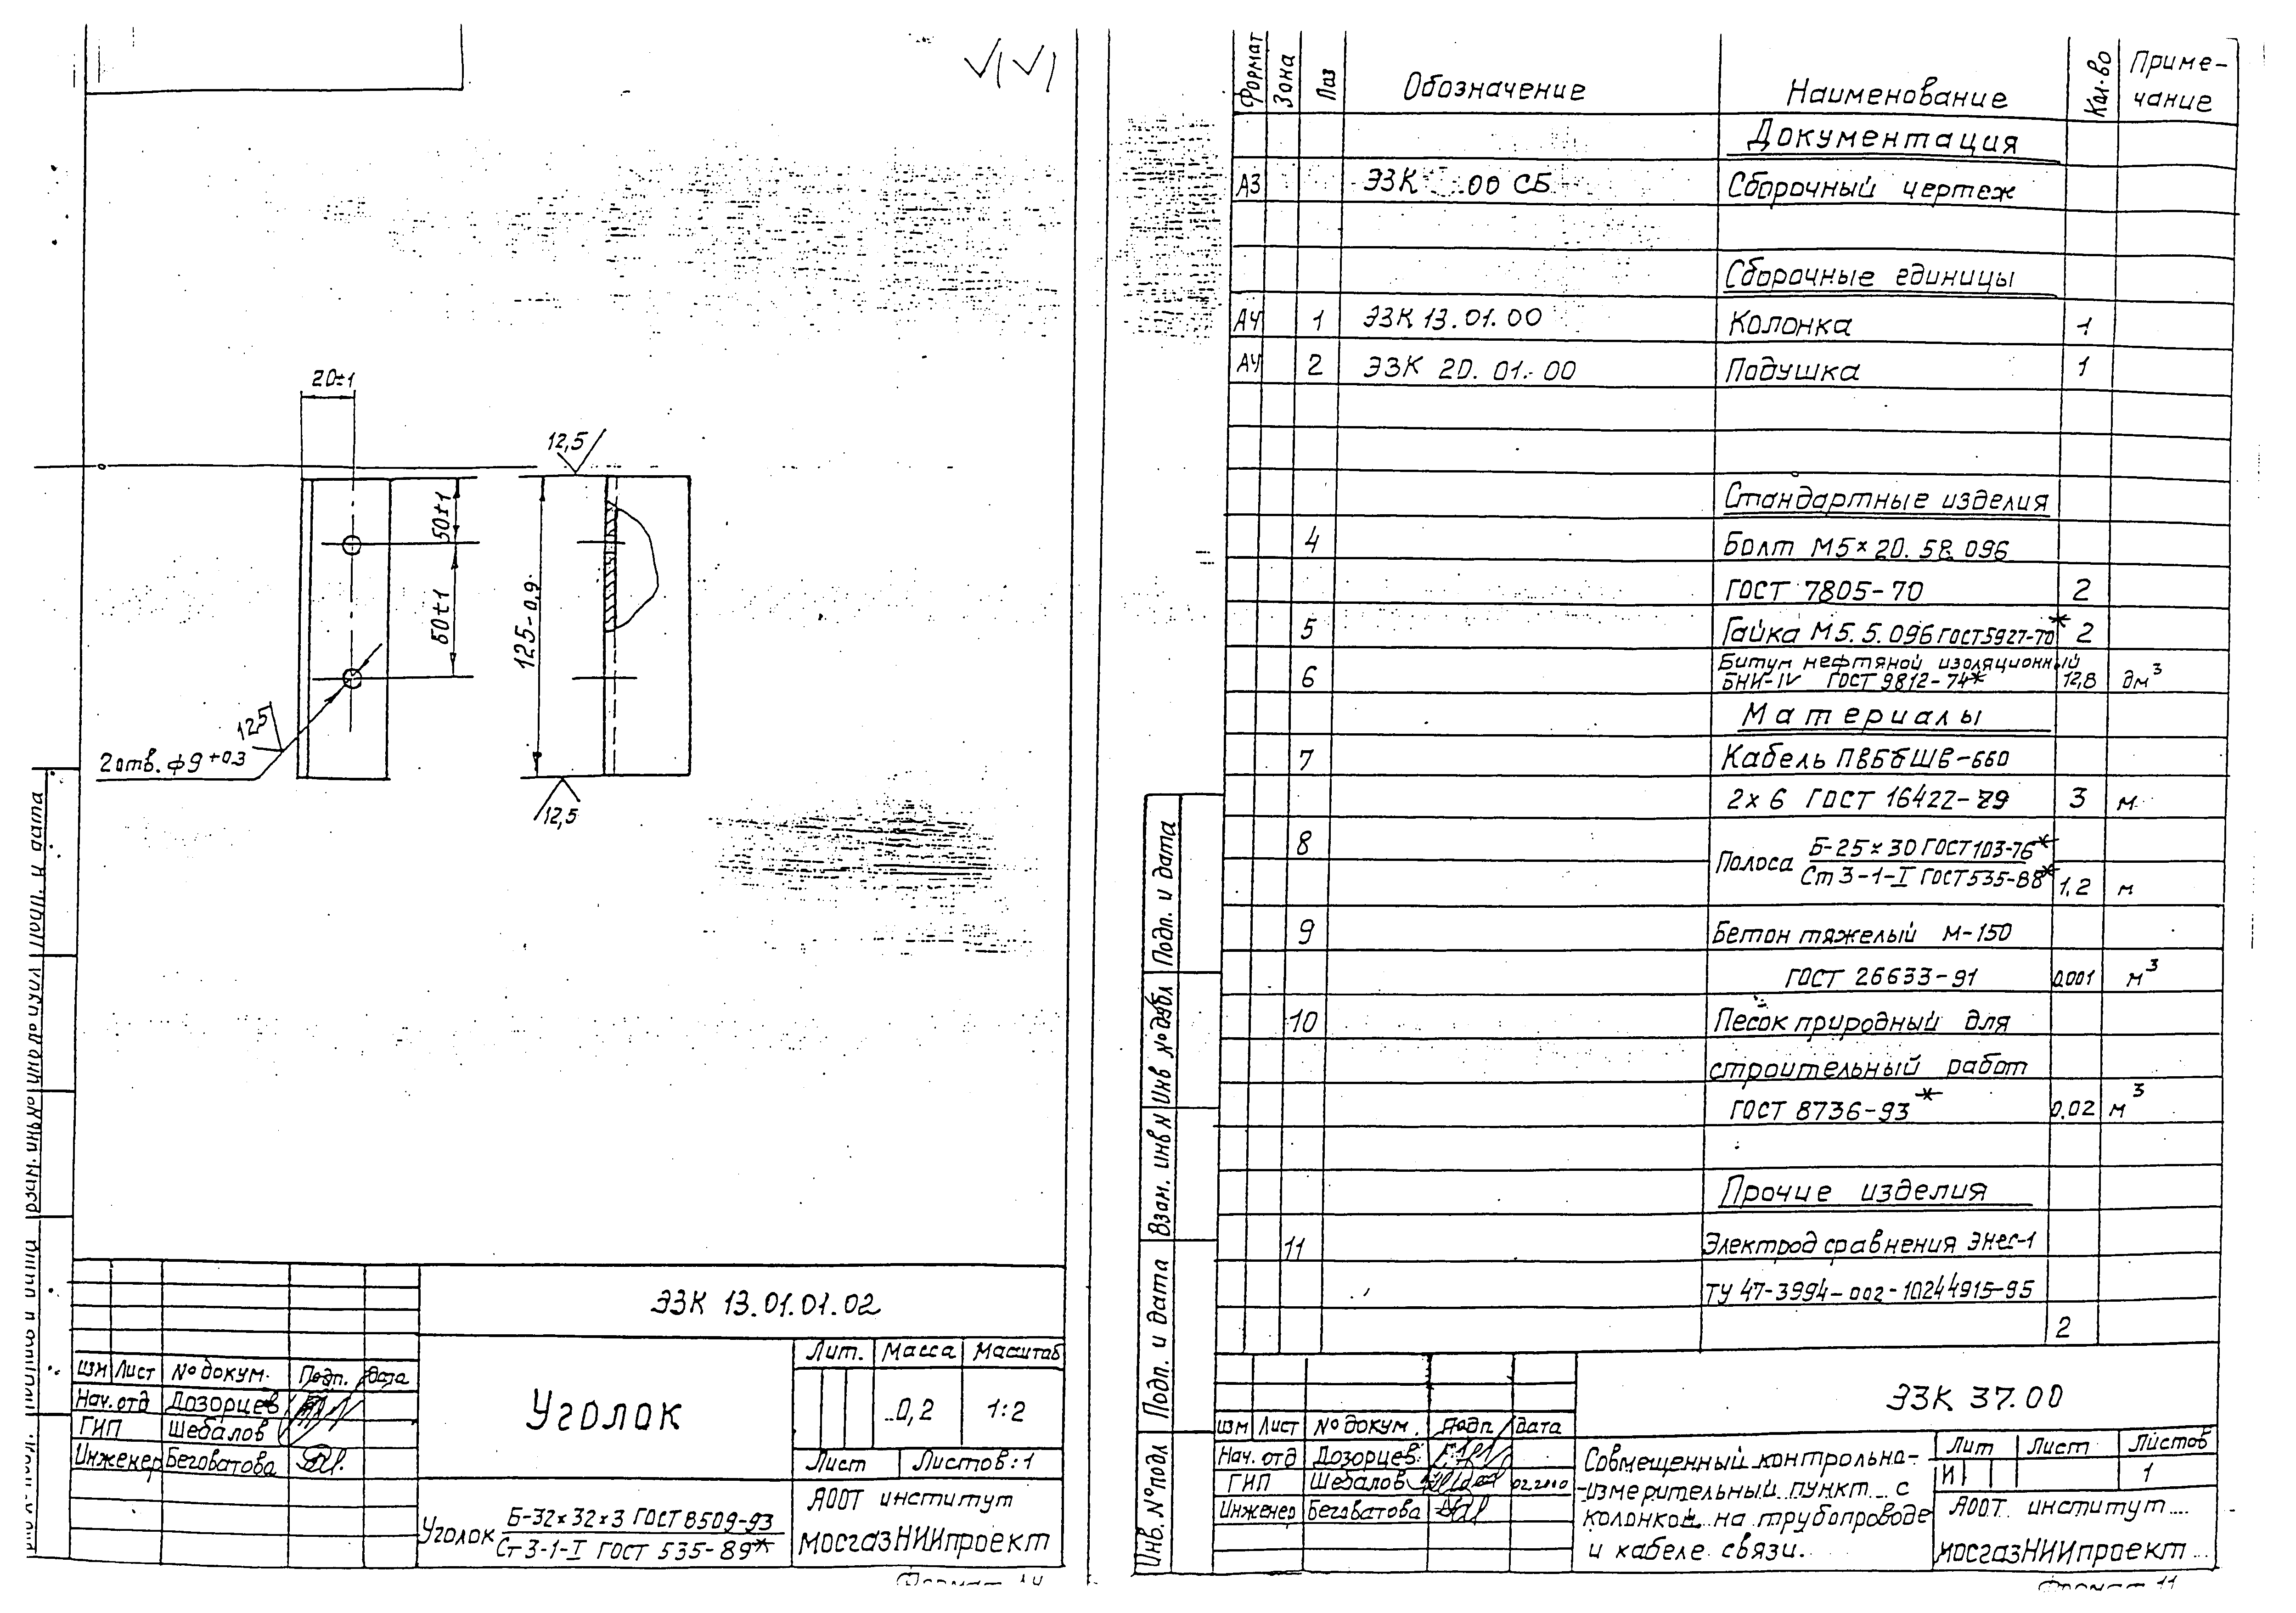 20±1
12,5
50±1
60±1
125-0,9
12,5
2 отв. ф9 +0.3
12,5
Подп. и дата
ЭЗК 13.01.01.02
изм Лист № докум. Подп. Дата
Нач. отд Дозорцев
ГИП Шебалов
Инженер Беговатова
Уголок
Лит. Масса Масштаб
0,2 1:2
Лист Листов: 1
Уголок Б-32×32×3 ГОСТ 8509-93
Ст 3-1-I ГОСТ 535-89*
АООТ институт
МосгазНИИпроект
Формат Зона Поз Обозначение Наименование Кол-во Приме-
чание
Документация
А3 ЭЗК .00 СБ Сборочный чертеж
Сборочные единицы
А4 1 ЭЗК 13.01.00 Колонка 1
А4 2 ЭЗК 20.01.00 Подушка 1
Стандартные изделия
4 Болт М5×20.58.096
ГОСТ 7805-70 2
5 Гайка М5.5.096 ГОСТ 5927-70* 2
Битум нефтяной изоляционный
6 БНИ-IV ГОСТ 9812-74* 12,8 дм³
Материалы
7 Кабель ПВБбШВ-660
2×6 ГОСТ 16422-79 3 м
8 Полоса Б-25×30 ГОСТ 103-76*
Ст 3-1-I ГОСТ 535-88* 1,2 м
9 Бетон тяжелый М-150
ГОСТ 26633-91 0.001 м³
10 Песок природный для
строительный работ
ГОСТ 8736-93* 0.02 м³
Прочие изделия
11 Электрод сравнения ЭНес-1
ТУ 47-3994-002-10244915-95
2
Подп. и дата
Инв № дубл
Взам. инв №
Подп. и дата
Инв. № подл
ЭЗК 37.00
изм Лист № докум. Подп. Дата
Нач. отд Дозорцев
ГИП Шебалов 02.2000
Инженер Беговатова
Совмещенный контрольно-
-измерительный пункт с
колонкой на трубопроводе
и кабеле связи.
Лит Лист Листов
И 1
АООТ институт
МосгазНИИпроект
Формат 11